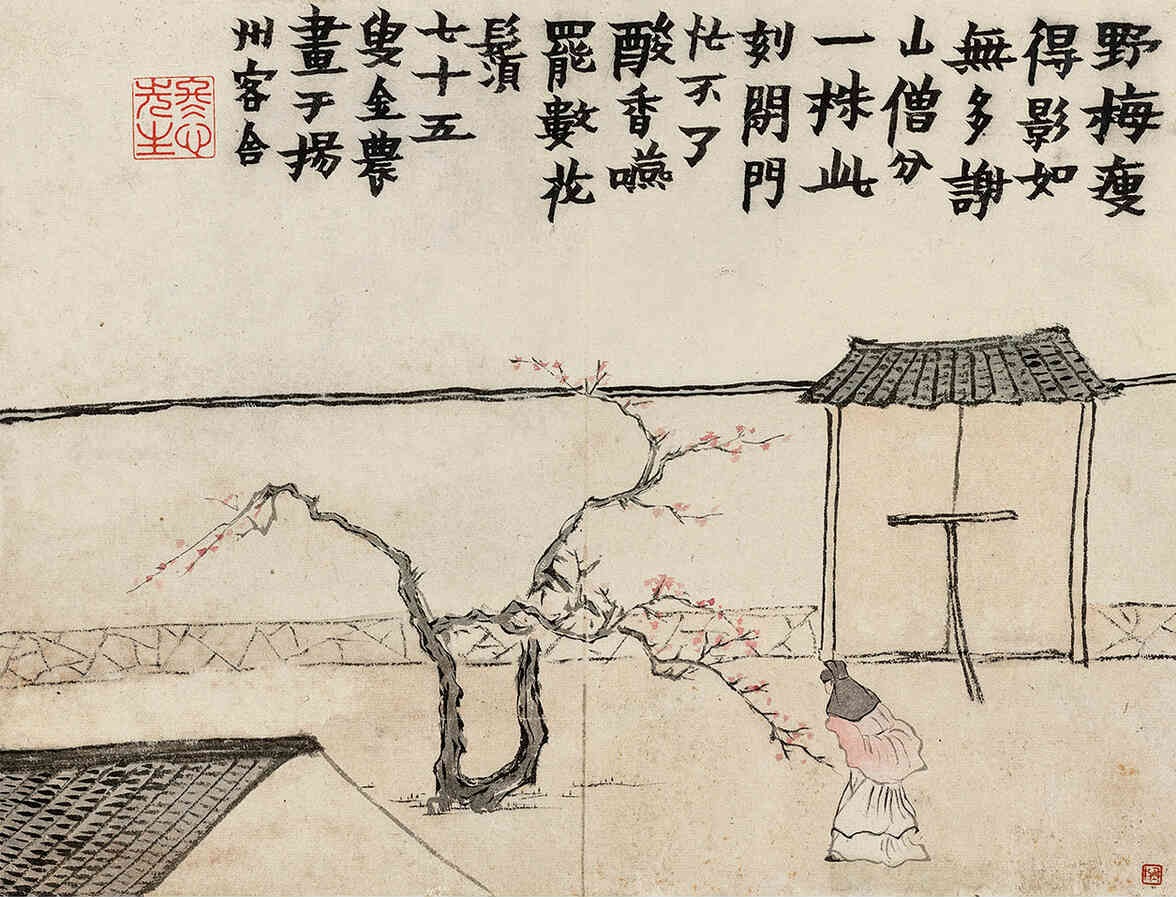 野梅瘦
得影如
無多謝
山僧分
一株此
刻閉門
忙不了
酸香嚥
罷數花
鬚
七十五
叟金農
畫于揚
州客舍
冬心先生